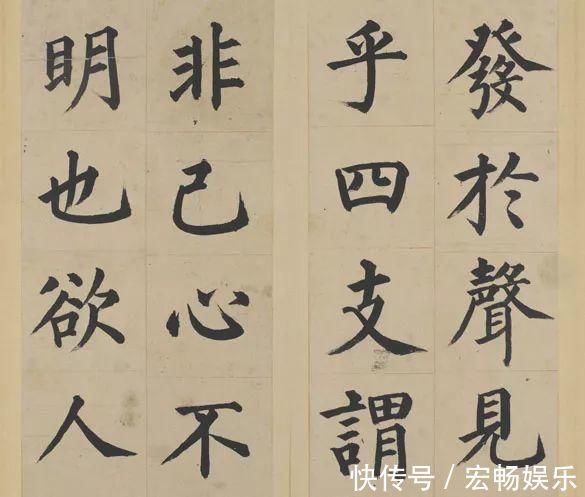 發於聲見
乎四支謂
非己心不
明也欲人
快传号／宏畅娱乐